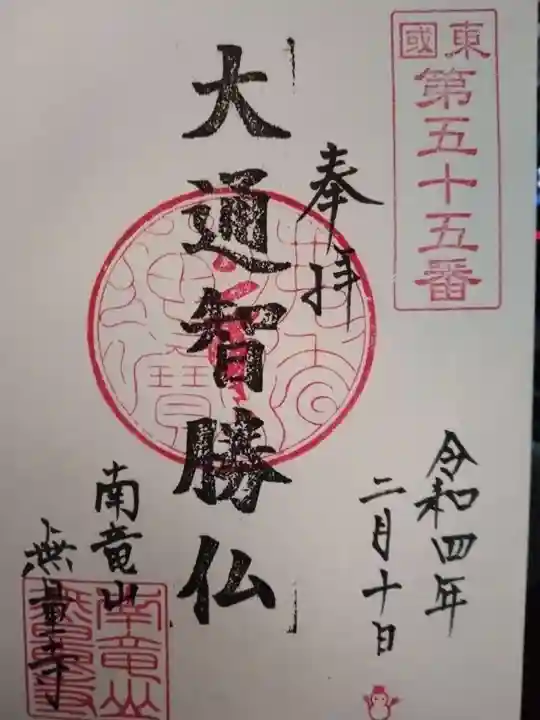 東國
第五十五番
奉拝
令和四年
二月十日
大通智勝仏
南竜山
無量寺
南竜山